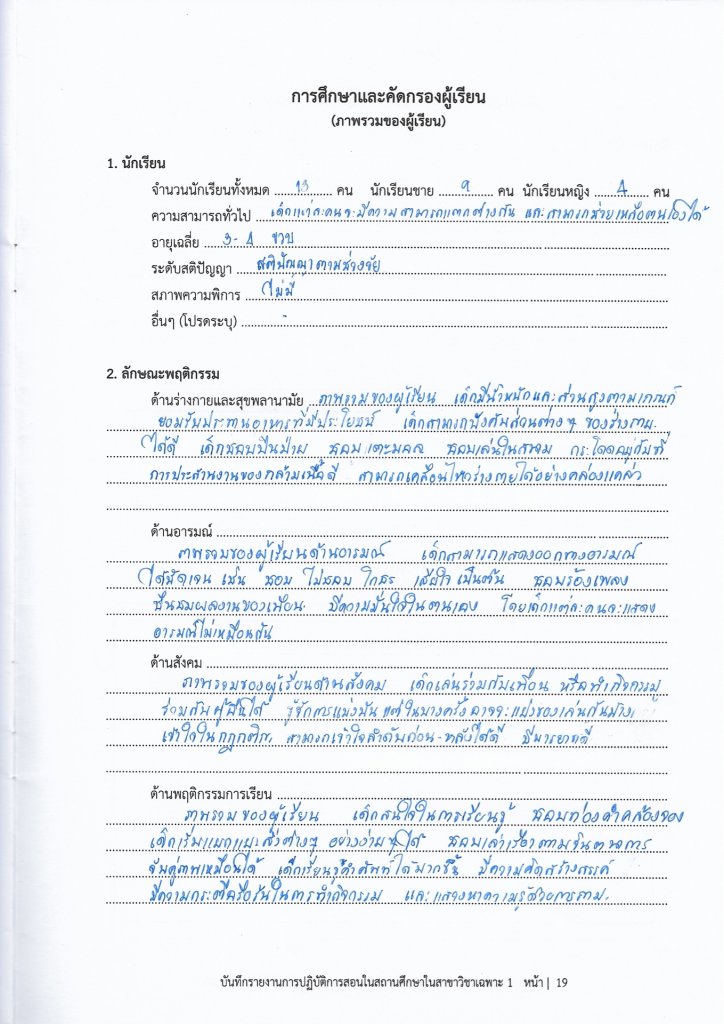 การศึกษาและคัดกรองผู้เรียน
(ภาพรวมของผู้เรียน)
1. นักเรียน
จำนวนนักเรียนทั้งหมด 13 คน นักเรียนชาย 9 คน นักเรียนหญิง 4 คน
ความสามารถทั่วไป เด็กแต่ละคนจะมีความสามารถแตกต่างกัน และสามารถช่วยเหลือตนเองได้
อายุเฉลี่ย 3-4 ขวบ
ระดับสติปัญญา สติปัญญาตามช่วงวัย
สภาพความพิการ ไม่มี
อื่นๆ (โปรดระบุ) -
2. ลักษณะพฤติกรรม
ด้านร่างกายและสุขพลานามัย ภาพรวมของผู้เรียน เด็กมีน้ำหนักและส่วนสูงตามเกณฑ์
ยอมรับประทานอาหารที่มีประโยชน์ เด็กสามารถบังคับส่วนต่างๆ ของร่างกาย
ได้ดี เด็กชอบปีนป่าย ชอบเตะบอล ชอบเล่นในสนาม กระโดดอยู่กับที่
การประสานงานของกล้ามเนื้อดี สามารถเคลื่อนไหวร่างกายได้อย่างคล่องแคล่ว
ด้านอารมณ์
ภาพรวมของผู้เรียนด้านอารมณ์ เด็กสามารถแสดงออกทางอารมณ์
ได้ชัดเจน เช่น ชอบ ไม่ชอบ โกรธ เสียใจ เป็นต้น ชอบร้องเพลง
ชื่นชมผลงานของเพื่อน มีความมั่นใจในตนเอง โดยเด็กแต่ละคนจะแสดง
อารมณ์ไม่เหมือนกัน
ด้านสังคม
ภาพรวมของผู้เรียนด้านสังคม เด็กเล่นร่วมกับเพื่อน หรือทำกิจกรรม
ร่วมกับผู้อื่นได้ รู้จักการแบ่งปัน แต่ในบางครั้งอาจจะแย่งของเล่นกันบ้าง
เข้าใจในกฎกติกา สามารถเข้าใจลำดับก่อน-หลังได้ดี มีมารยาทดี
ด้านพฤติกรรมการเรียน
ภาพรวมของผู้เรียน เด็กสนใจในการเรียนรู้ ชอบท่องคำคล้องจอง
เด็กเริ่มแยกแยะสิ่งต่างๆ อย่างง่ายๆ ได้ ชอบเล่าเรื่องตามจินตนาการ
จับคู่ภาพเหมือนได้ เด็กเรียนรู้คำศัพท์ได้มากขึ้น มีความคิดสร้างสรรค์
มีความกระตือรือร้นในการทำกิจกรรม และแสวงหาความรู้ด้วยการถาม
บันทึกรายงานการปฏิบัติการสอนในสถานศึกษาในสาขาวิชาเฉพาะ 1 หน้า | 19